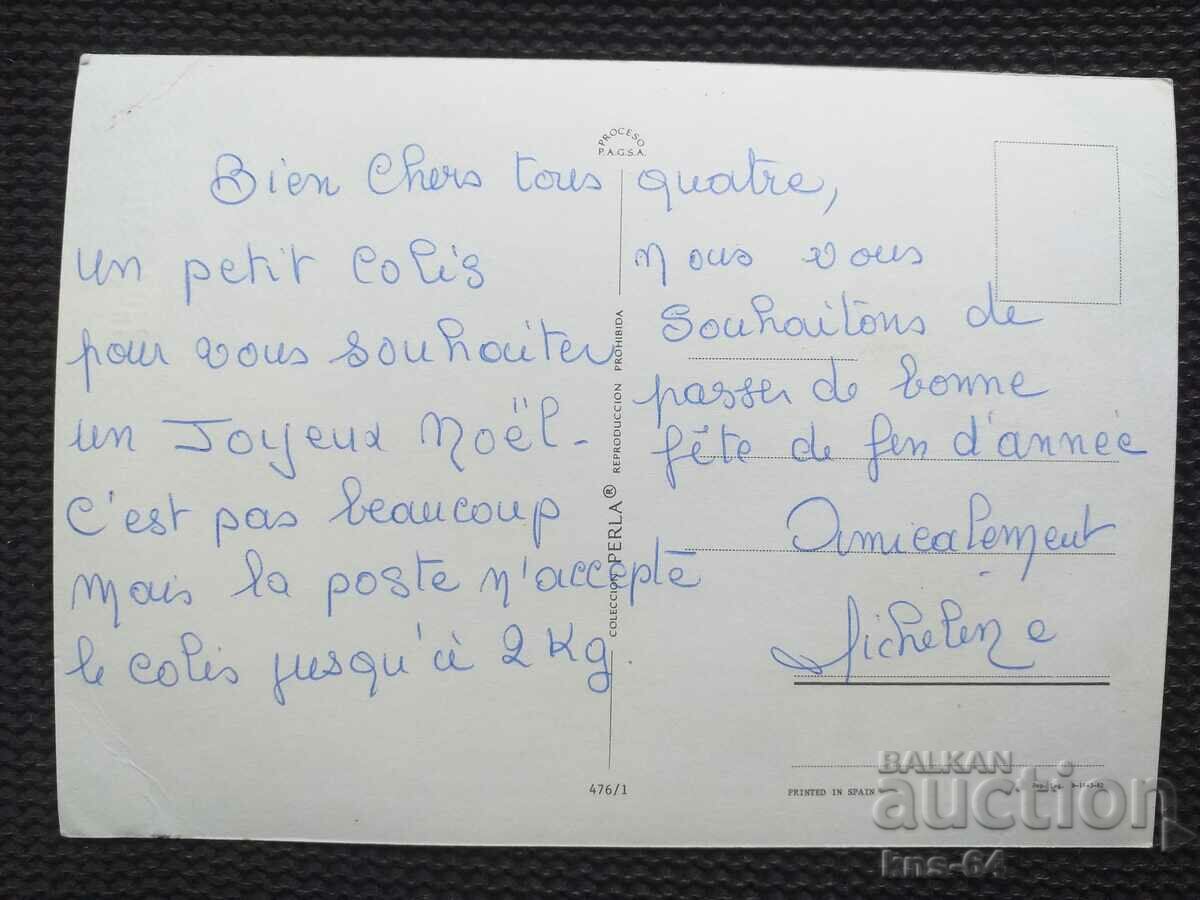 PROCESO
P.A.G.S.A.
Bien Chers tous quatre,
un petit colis
pour vous souhaiter
un Joyeux Noël -
C'est pas beaucoup
mais la poste n'accepte
le colis jusqu'à 2 Kg.
nous vous
souhaitons de
passer de bonne
fête de fin d'année
Amicalement
Micheline
COLECCION PERLA® REPRODUCCION PROHIBIDA
476/1
PRINTED IN SPAIN
BALKAN
auction
kns-64